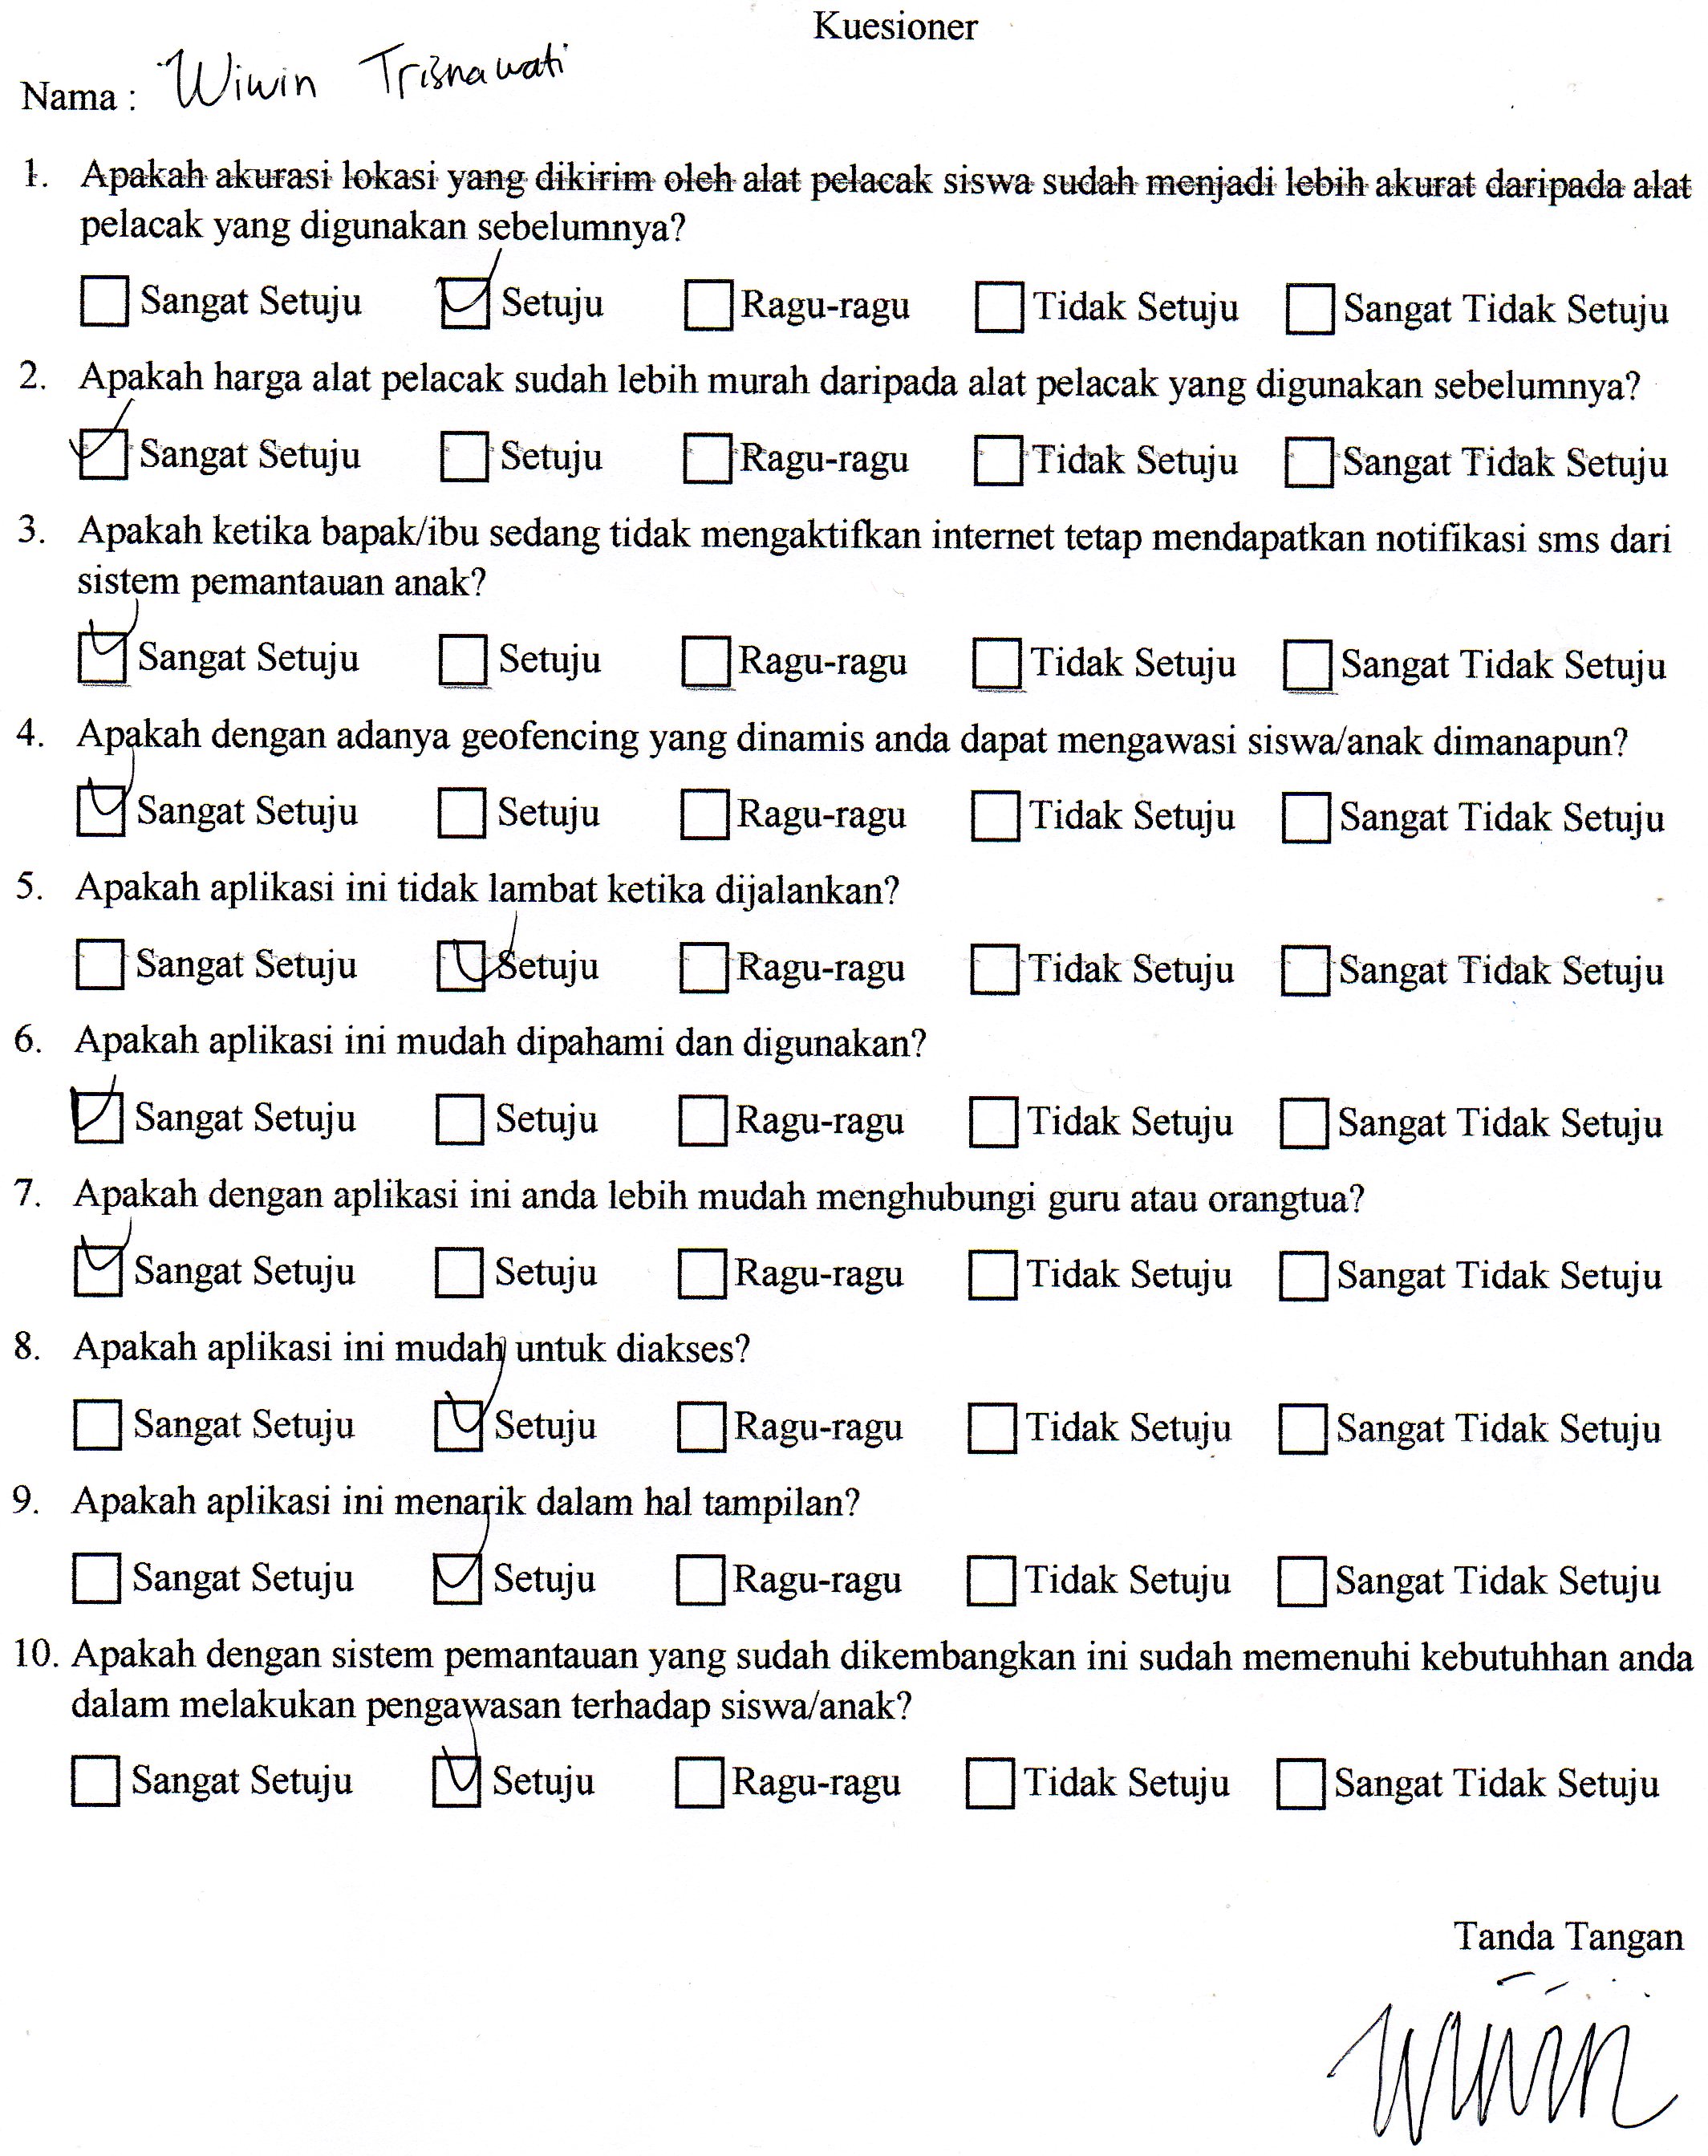 Kuesioner
Nama : Wiwin Trisnawati
1. Apakah akurasi lokasi yang dikirim oleh alat pelacak siswa sudah menjadi lebih akurat daripada alat
pelacak yang digunakan sebelumnya?
☐ Sangat Setuju ☑ Setuju ☐ Ragu-ragu ☐ Tidak Setuju ☐ Sangat Tidak Setuju
2. Apakah harga alat pelacak sudah lebih murah daripada alat pelacak yang digunakan sebelumnya?
☑ Sangat Setuju ☐ Setuju ☐ Ragu-ragu ☐ Tidak Setuju ☐ Sangat Tidak Setuju
3. Apakah ketika bapak/ibu sedang tidak mengaktifkan internet tetap mendapatkan notifikasi sms dari
sistem pemantauan anak?
☑ Sangat Setuju ☐ Setuju ☐ Ragu-ragu ☐ Tidak Setuju ☐ Sangat Tidak Setuju
4. Apakah dengan adanya geofencing yang dinamis anda dapat mengawasi siswa/anak dimanapun?
☑ Sangat Setuju ☐ Setuju ☐ Ragu-ragu ☐ Tidak Setuju ☐ Sangat Tidak Setuju
5. Apakah aplikasi ini tidak lambat ketika dijalankan?
☐ Sangat Setuju ☑ Setuju ☐ Ragu-ragu ☐ Tidak Setuju ☐ Sangat Tidak Setuju
6. Apakah aplikasi ini mudah dipahami dan digunakan?
☑ Sangat Setuju ☐ Setuju ☐ Ragu-ragu ☐ Tidak Setuju ☐ Sangat Tidak Setuju
7. Apakah dengan aplikasi ini anda lebih mudah menghubungi guru atau orangtua?
☑ Sangat Setuju ☐ Setuju ☐ Ragu-ragu ☐ Tidak Setuju ☐ Sangat Tidak Setuju
8. Apakah aplikasi ini mudah untuk diakses?
☐ Sangat Setuju ☑ Setuju ☐ Ragu-ragu ☐ Tidak Setuju ☐ Sangat Tidak Setuju
9. Apakah aplikasi ini menarik dalam hal tampilan?
☐ Sangat Setuju ☑ Setuju ☐ Ragu-ragu ☐ Tidak Setuju ☐ Sangat Tidak Setuju
10. Apakah dengan sistem pemantauan yang sudah dikembangkan ini sudah memenuhi kebutuhhan anda
dalam melakukan pengawasan terhadap siswa/anak?
☐ Sangat Setuju ☑ Setuju ☐ Ragu-ragu ☐ Tidak Setuju ☐ Sangat Tidak Setuju
Tanda Tangan
Wiwin